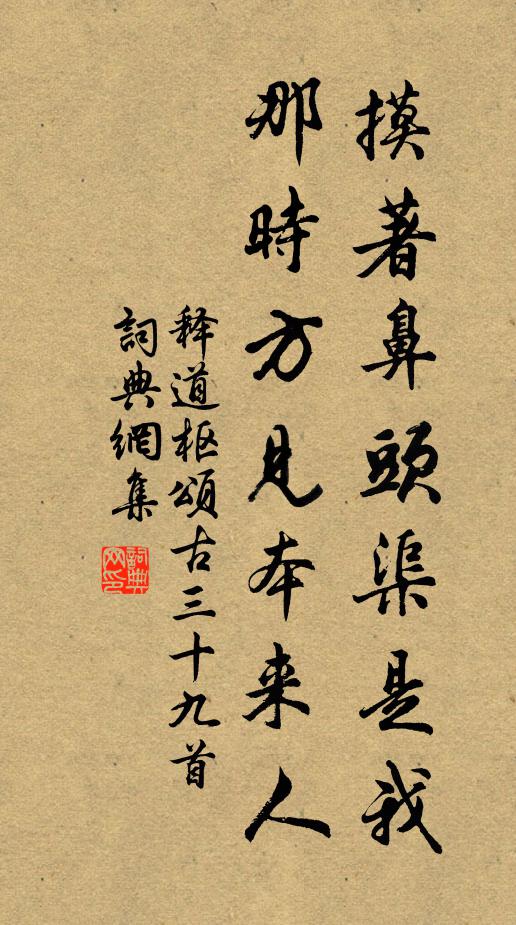 摸著鼻頭渠是我
那時方见本来人
释道枢頌古三十九首
詞典網集
詞典网印